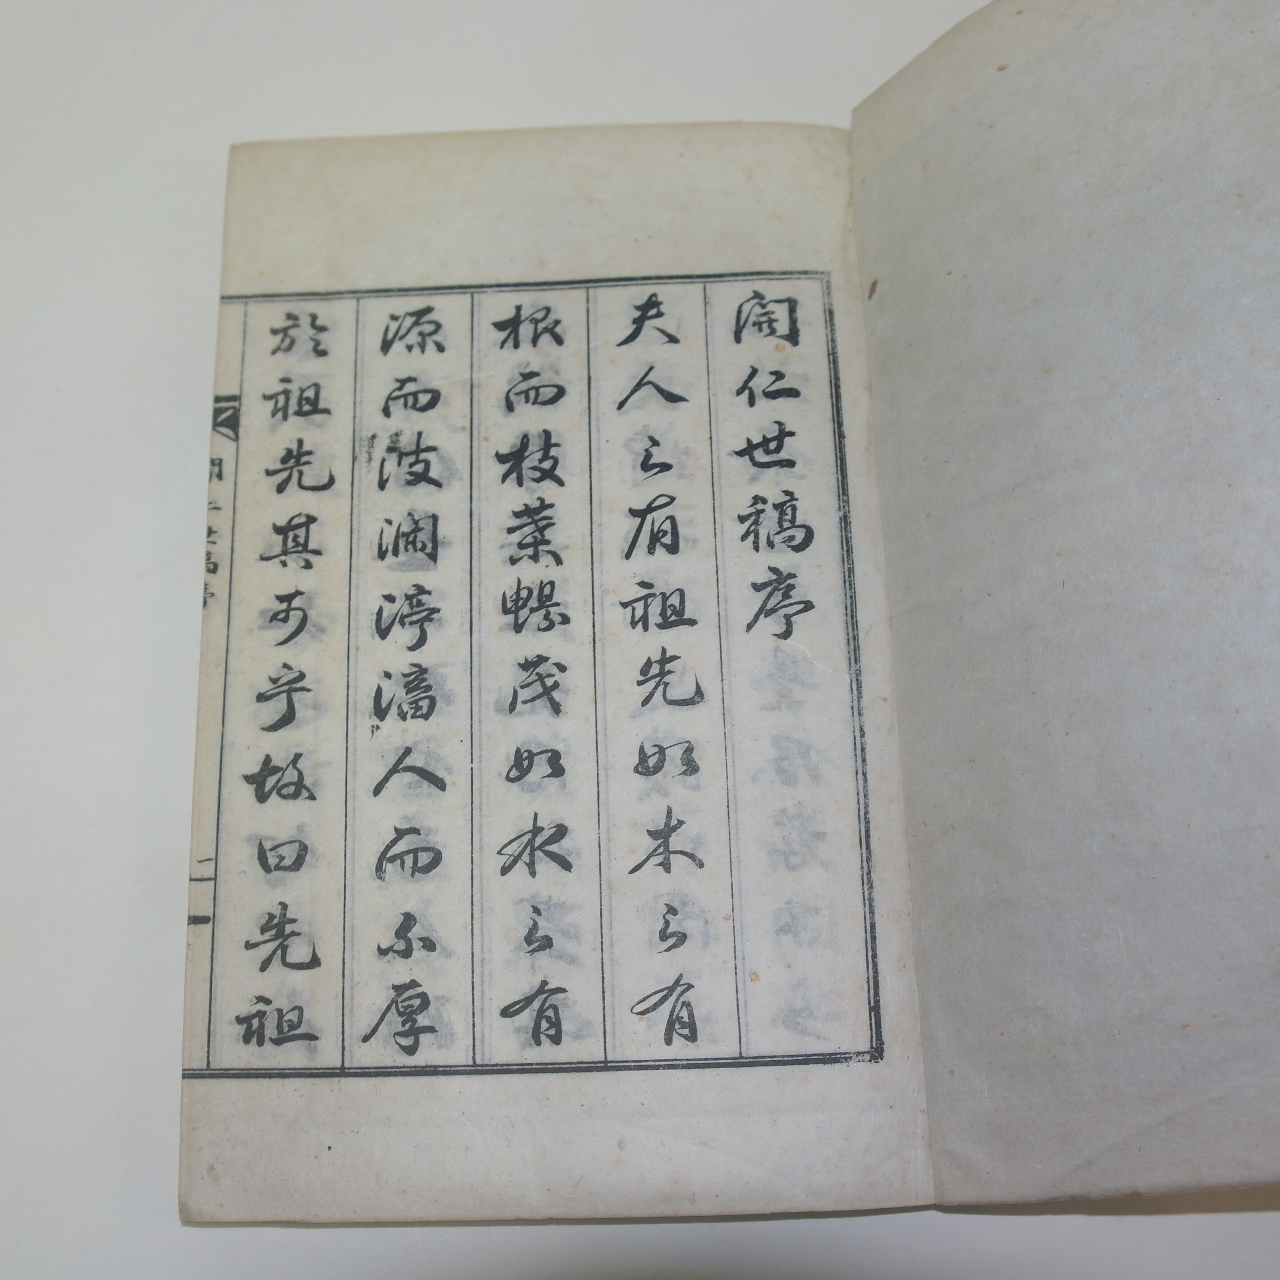 開仁世稿序
夫人之有祖先如木之有
根而枝葉暢茂如水之有
源而波瀾渟滀人而不厚
於祖先其可乎故曰先祖
開仁世稿序
一